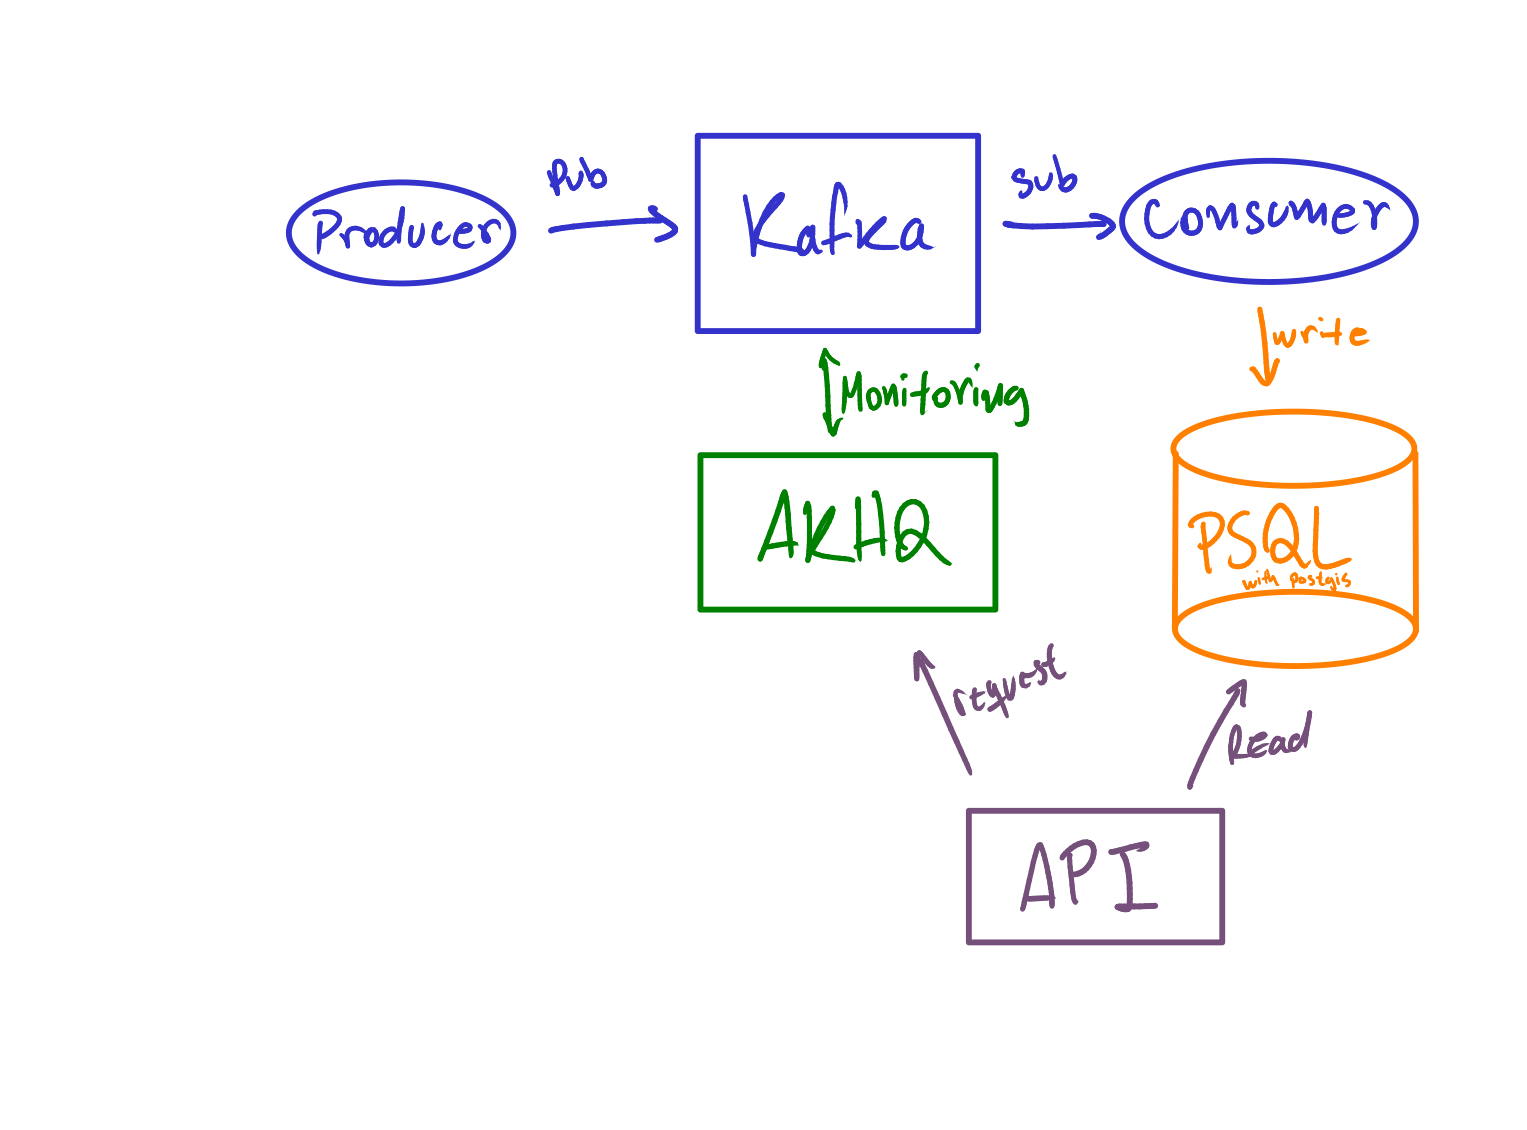 Pub
Sub
Producer
Kafka
Consumer
write
Monitoring
AKHQ
PSQL
with postgis
request
Read
API